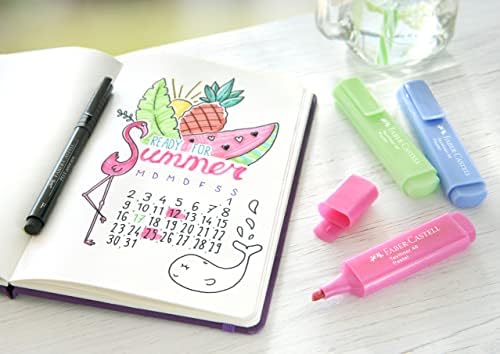 READY FOR
Summer
M D M D F S S
1
2 3 4 5 6 7 8
9 10 11 12 13 14 15
16 17 18 19 20 21 22
23 24 25 26 27 28 29
30 31
FABER-CASTELL
FABER-CASTELL
FABER-CASTELL
Textliner 46
Pastel